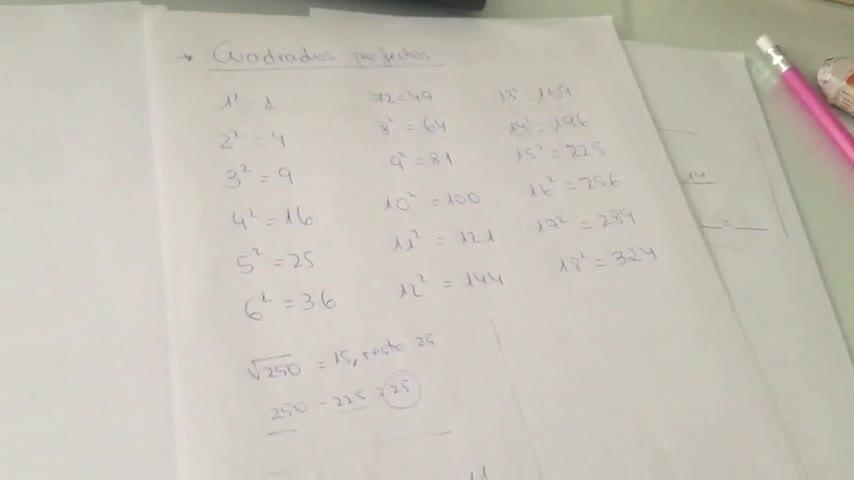 → Cuadrados perfectos
1² = 1
2² = 4
3² = 9
4² = 16
5² = 25
6² = 36
72 = 49
8² = 64
9² = 81
10² = 100
11² = 121
12² = 144
13² = 169
14² = 196
15² = 225
16² = 256
17² = 289
18² = 324
√250 = 15, resto 25
250 - 225 = 25
14
=